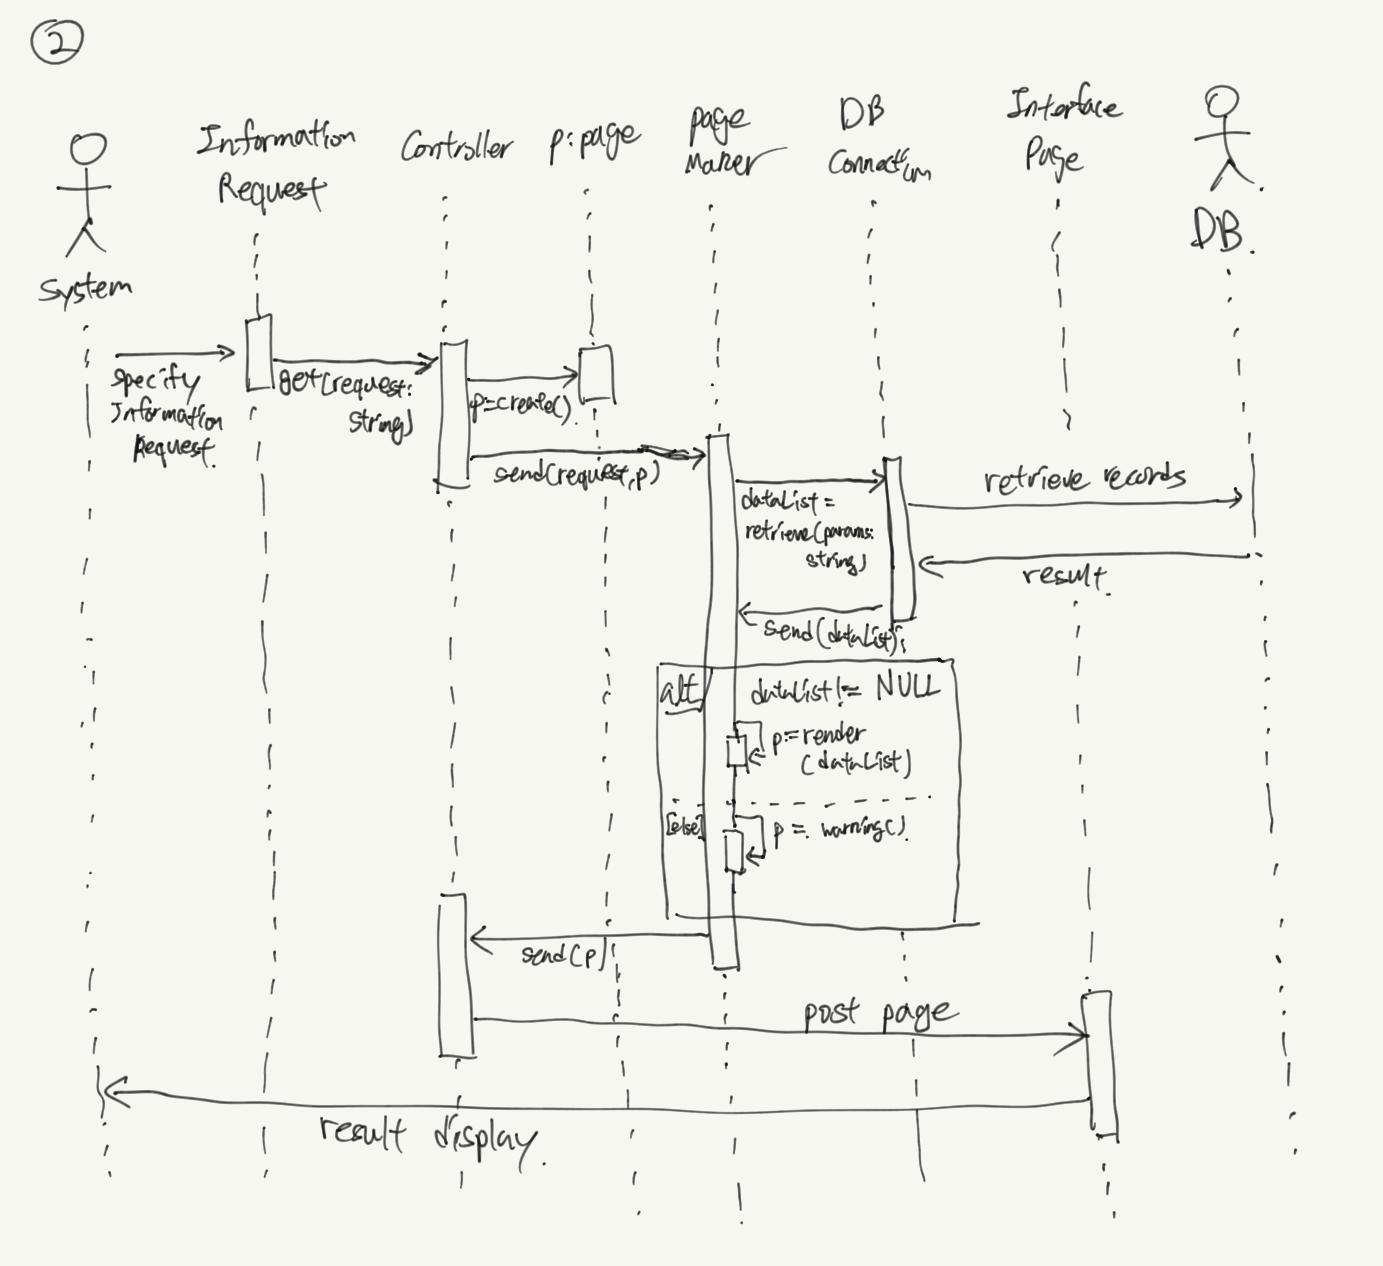 2
System
Information
Request
Controller
p:page
page
Maker
DB
Connection
Interface
Page
DB.
specify
Information
Request.
get(request:
string)
p:=create().
send(request,p)
dataList =
retrieve(params:
string)
retrieve records
result.
send(dataList);
alt
dataList != NULL
p:=render
(dataList)
[else]
p =. warning().
send(p)
post page
result display.